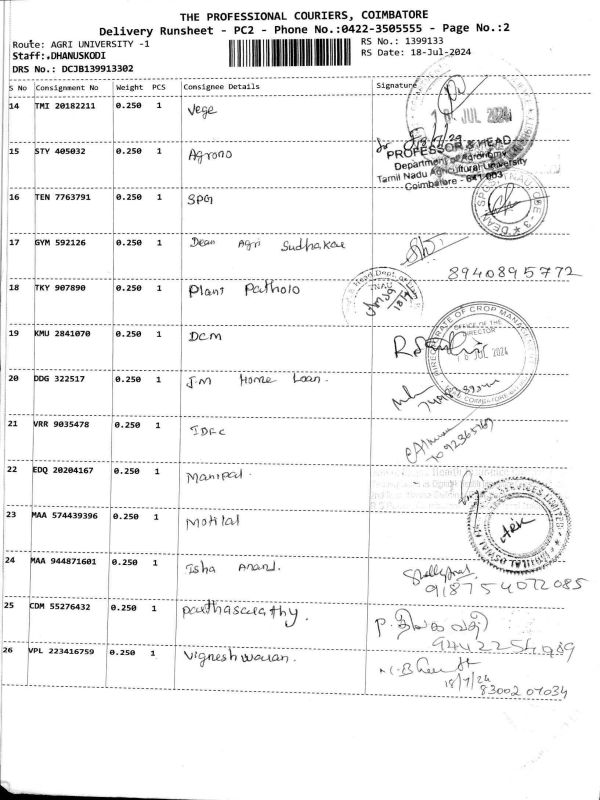 THE PROFESSIONAL COURIERS, COIMBATORE
Delivery Runsheet - PC2 - Phone No.:0422-3505555 - Page No.:2
Route: AGRI UNIVERSITY -1 RS No.: 1399133
Staff:.DHANUSKODI RS Date: 18-Jul-2024
DRS No.: DCJB139913302
S No Consignment No Weight PCS Consignee Details Signature
14 TMI 20182211 0.250 1 Vege
JUL 2024
15 STY 405032 0.250 1 Agrono
PROFESSOR & HEAD
Department of Agronomy
Tamil Nadu Agricultural University
Coimbatore - 641 003
16 TEN 7763791 0.250 1 SPGI
17 GYM 592126 0.250 1 Dean Agri Sudhakar
8940895772
18 TKY 907890 0.250 1 Plant Patholo
TNAU
19 KMU 2841070 0.250 1 DCM
DIRECTORATE OF CROP
OFFICE OF THE
DIRECTOR
JUL 2024
20 DDG 322517 0.250 1 J.M Home Loan.
21 VRR 9035478 0.250 1 IDFC
22 EDQ 20204167 0.250 1 Manipal.
23 MAA 574439396 0.250 1 Motilal
SERVICES LIMITED
24 MAA 944871601 0.250 1 Isha Anand.
918754072085
25 CDM 55276432 0.250 1 Parthasarathy.
26 VPL 223416759 0.250 1 Vigneshwaran.
18/7/24